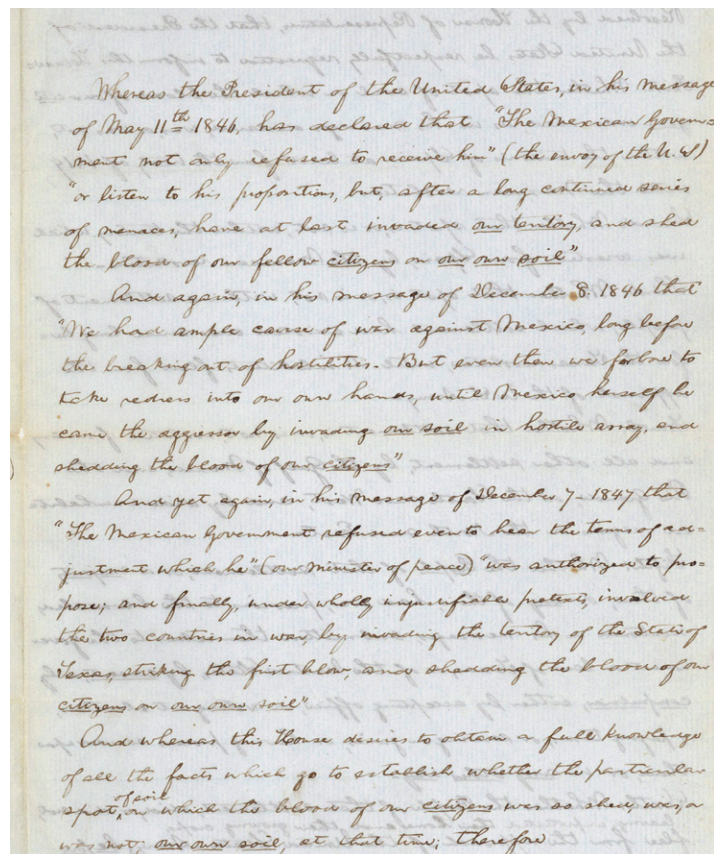 Whereas the President of the United States, in his message
of May 11th 1846, has declared that "The Mexican Govern-
ment not only refused to receive him" (the envoy of the U.S.)
"or listen to his propositions, but, after a long continued series
of menaces, have at last invaded our teritory, and shed
the blood of our fellow citizens on our own soil"
And again, in his message of December 8, 1846 that
"We had ample cause of war against Mexico, long before
the breaking out of hostilities. But even then we forbore to
take redress into our own hands, until Mexico herself be
came the aggressor by invading our soil in hostile array, and
shedding the blood of our citizens"
And yet again, in his message of December 7- 1847 that
"The Mexican Government refused even to hear the terms of ad-
justment which he" (our minister of peace) "was authorized to pro-
pose; and finally, under wholly unjustifiable pretexts, involved
the two countries in war, by invading the teritory of the State of
Texas, striking the first blow, and shedding the blood of our
citizens on our own soil"
And whereas this House desires to obtain a full knowledge
of all the facts which go to establish whether the particular
of soil
spot, on which the blood of our citizens was so shed, was, or
was not, our own soil, at that time; therefore